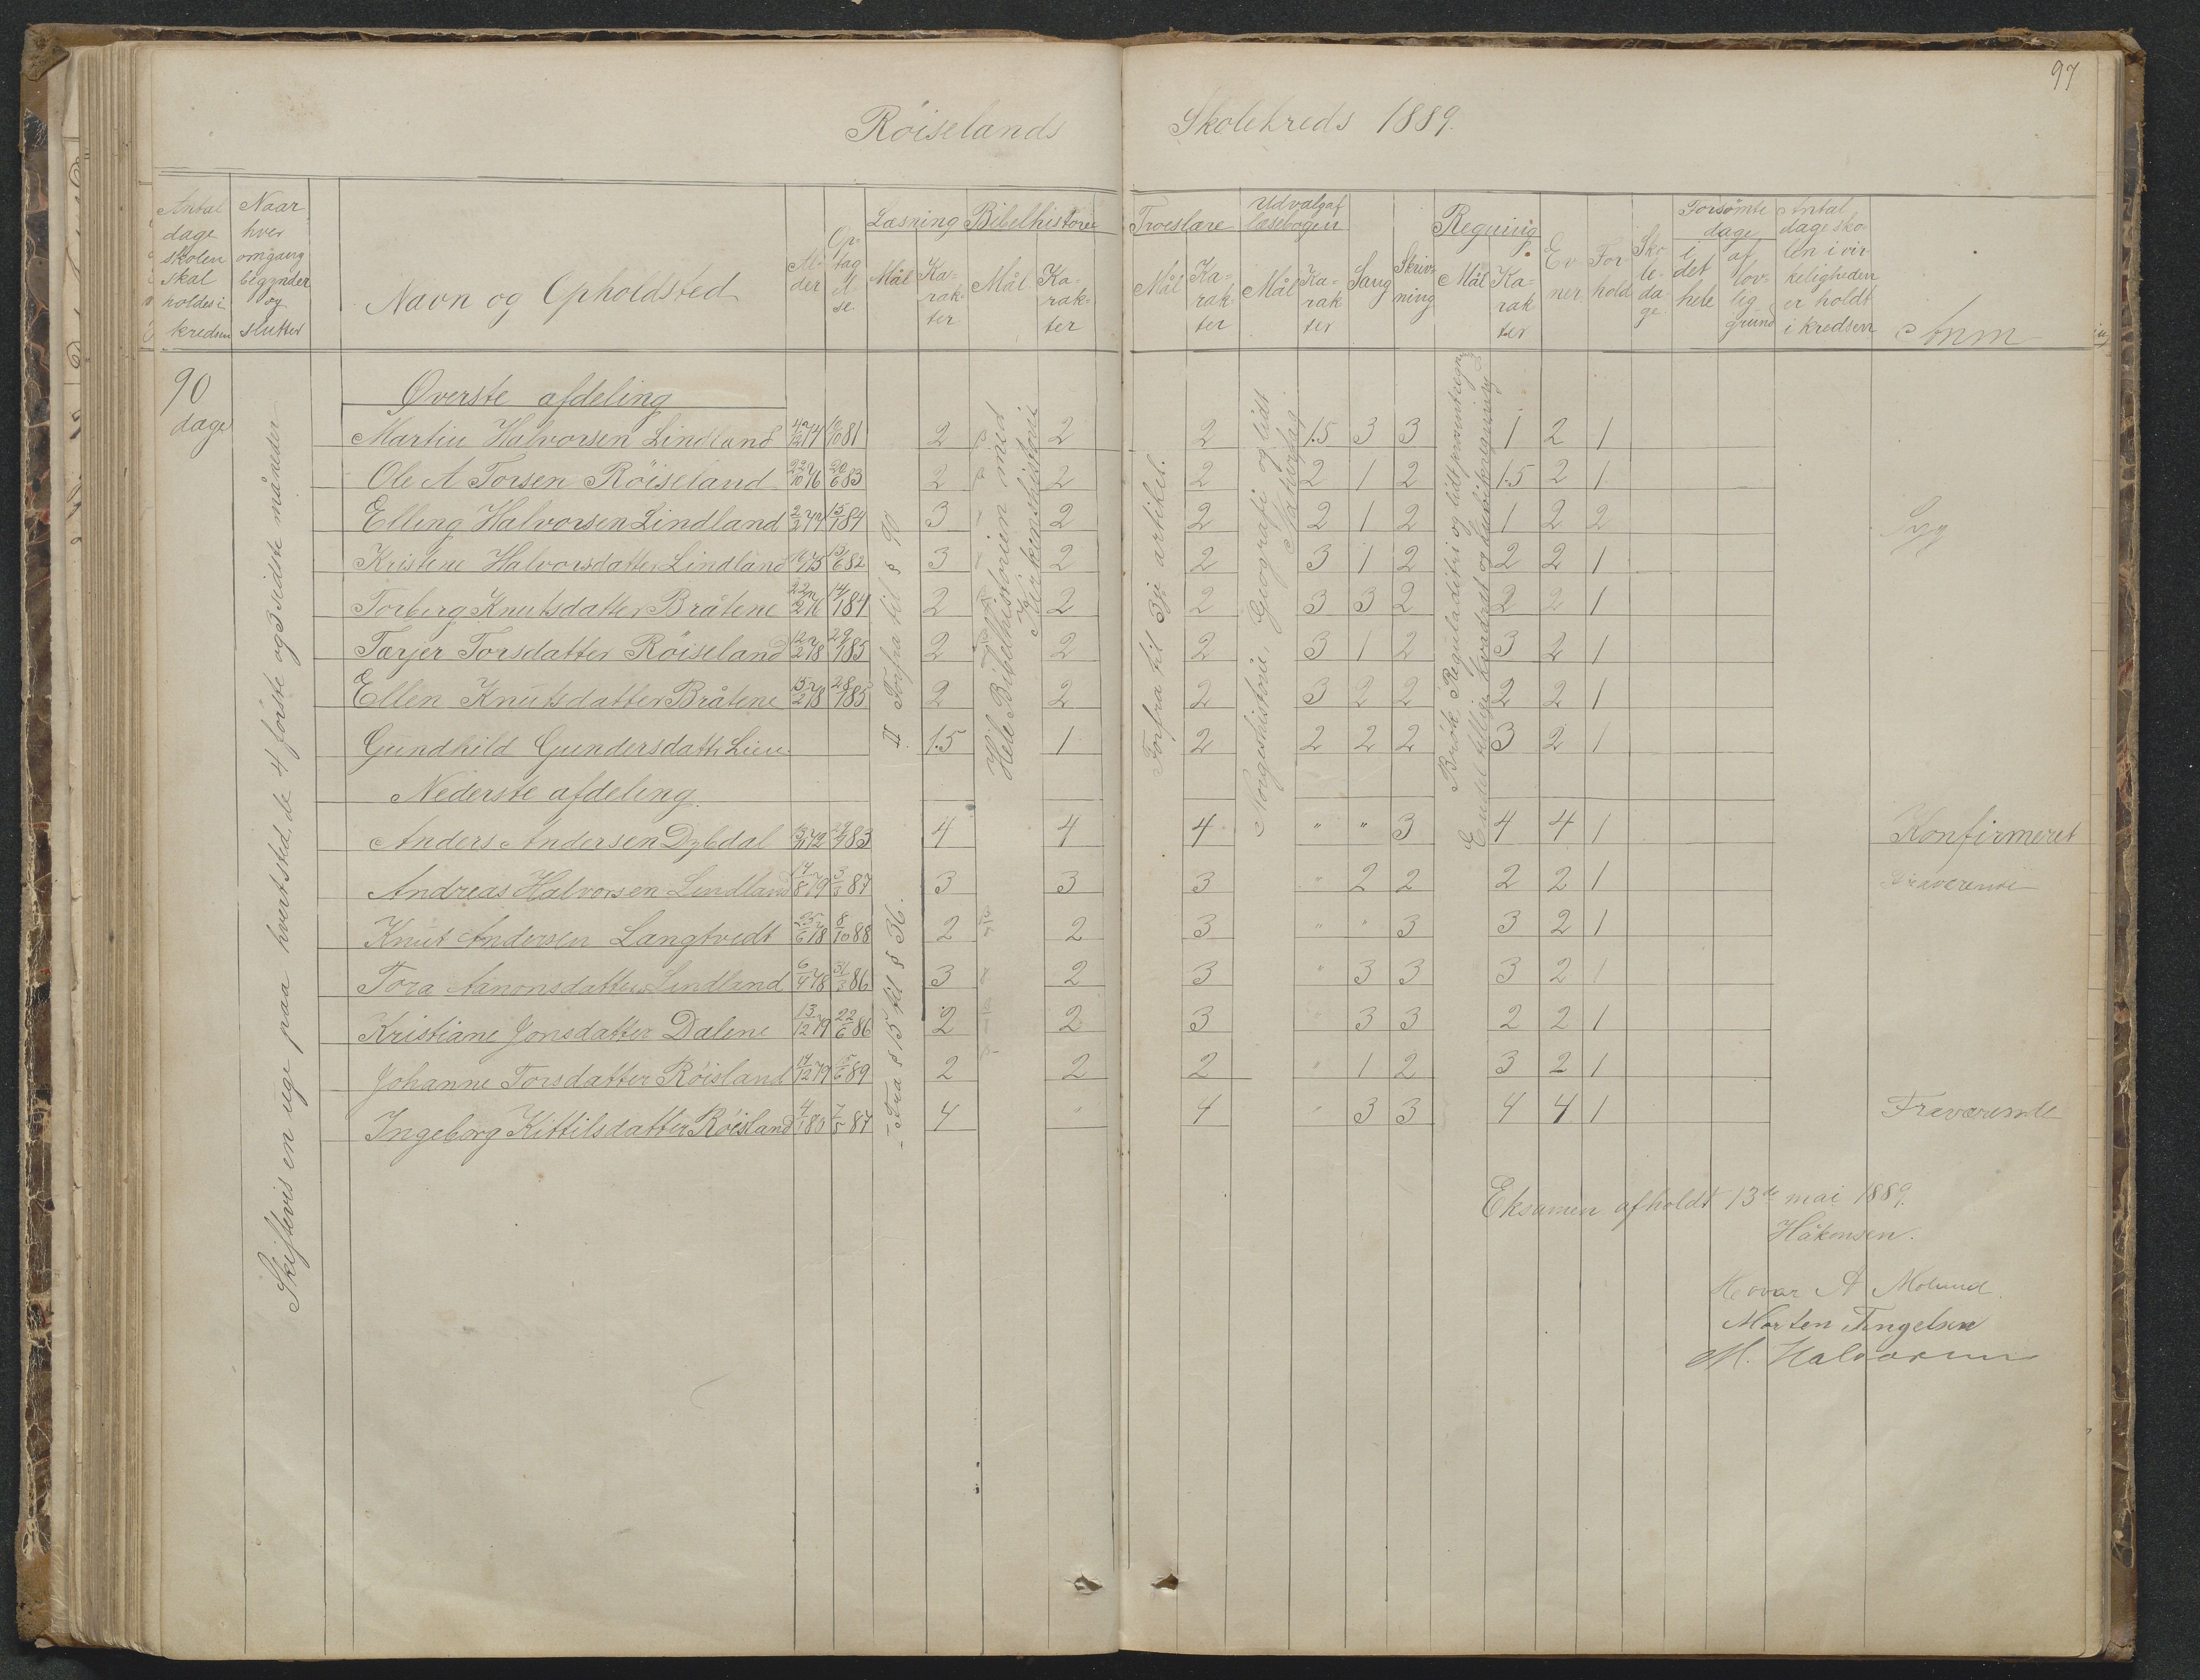 97
Röiselands Skolekreds 1889.
Antal dage skolen skal holdes i kredsen
Naar hver omgang begynder og slutter
Navn og Opholdsted
Alder
Optagelse
Læsning
Mål Karakter
Bibelhistorie
Mål Karakter
Troeslære
Mål Karakter
Udvalg af læsebogen
Mål Karakter
Sang
Skrivning
Regning
Mål Karakter
Evner
Forhold
Skoledage
Forsømte dage
i det hele
af lovlig grund
Antal dage skolen i virkeligheden er holdt i kredsen
Anm
90 dage
Skiftevis en uge paa hvert sted, de 4 første og 3 sidste måneder
II Forfra til § 90
I Fra § 15 til § 36.
Hele Bibelhistorien med Kirkenshistorie
Forfra til 3je artikel.
Norgeshistorie, Geografi og lidt Naturfag
Brök, Reguladitri og lidt procentregn
Endel tillige kvadrat og kubikregning
Øverste afdeling
Martin Halvorsen Lindland 4/12 74 6/10 81 2 2 2 1.5 3 3 1 2 1
Ole A Torsen Röiseland 22/10 76 20/6 83 2 2 2 2 1 2 1.5 2 1
Elling Halvorsen Lindland 2/2 77 15/1 84 3 2 2 2 1 2 1 2 2 Syg
Kristene Halvorsdatter Lindland 75 13/6 82 3 2 2 3 1 2 2 2 1
Torberg Knutsdatter Bråtene 22/2 76 14/1 84 2 2 2 3 3 2 2 2 1
Tarjer Torsdatter Röiseland 12/2 78 29/1 85 2 2 2 3 1 2 3 2 1
Ellen Knutsdatter Bråtene 15/2 78 28/1 85 2 2 2 3 2 2 2 2 1
Gundhild Gundersdattr Lien 1.5 1 2 2 2 2 3 2 1
Nederste afdeling.
Anders Andersen Dybdal 72 83 4 4 4 " " 3 4 4 1 Konfirmeret
Andreas Halvorsen Lindland 17/8 79 87 3 3 3 " 2 2 2 2 1 Fraverende
Knut Andersen Langtvedt 25/6 78 8/10 88 2 2 3 " " 3 3 2 1
Tora Aanonsdatter Lindland 6/4 78 86 3 2 3 " 3 3 3 2 1
Kristiane Jonsdatter Dalene 13/12 79 22/6 86 2 2 3 " 3 3 2 2 1
Johanne Torsdatter Röisland 17/12 79 15/6 89 2 2 2 " 1 2 3 2 1
Ingeborg Kittilsdatter Röisland 4/1 80 87 4 " 4 " 3 3 4 4 1 Fraværende
Eksamen afholdt 13de mai 1889.
Håkonsen.
A Molund.
Morten Tingelsen
M. Halvorsen